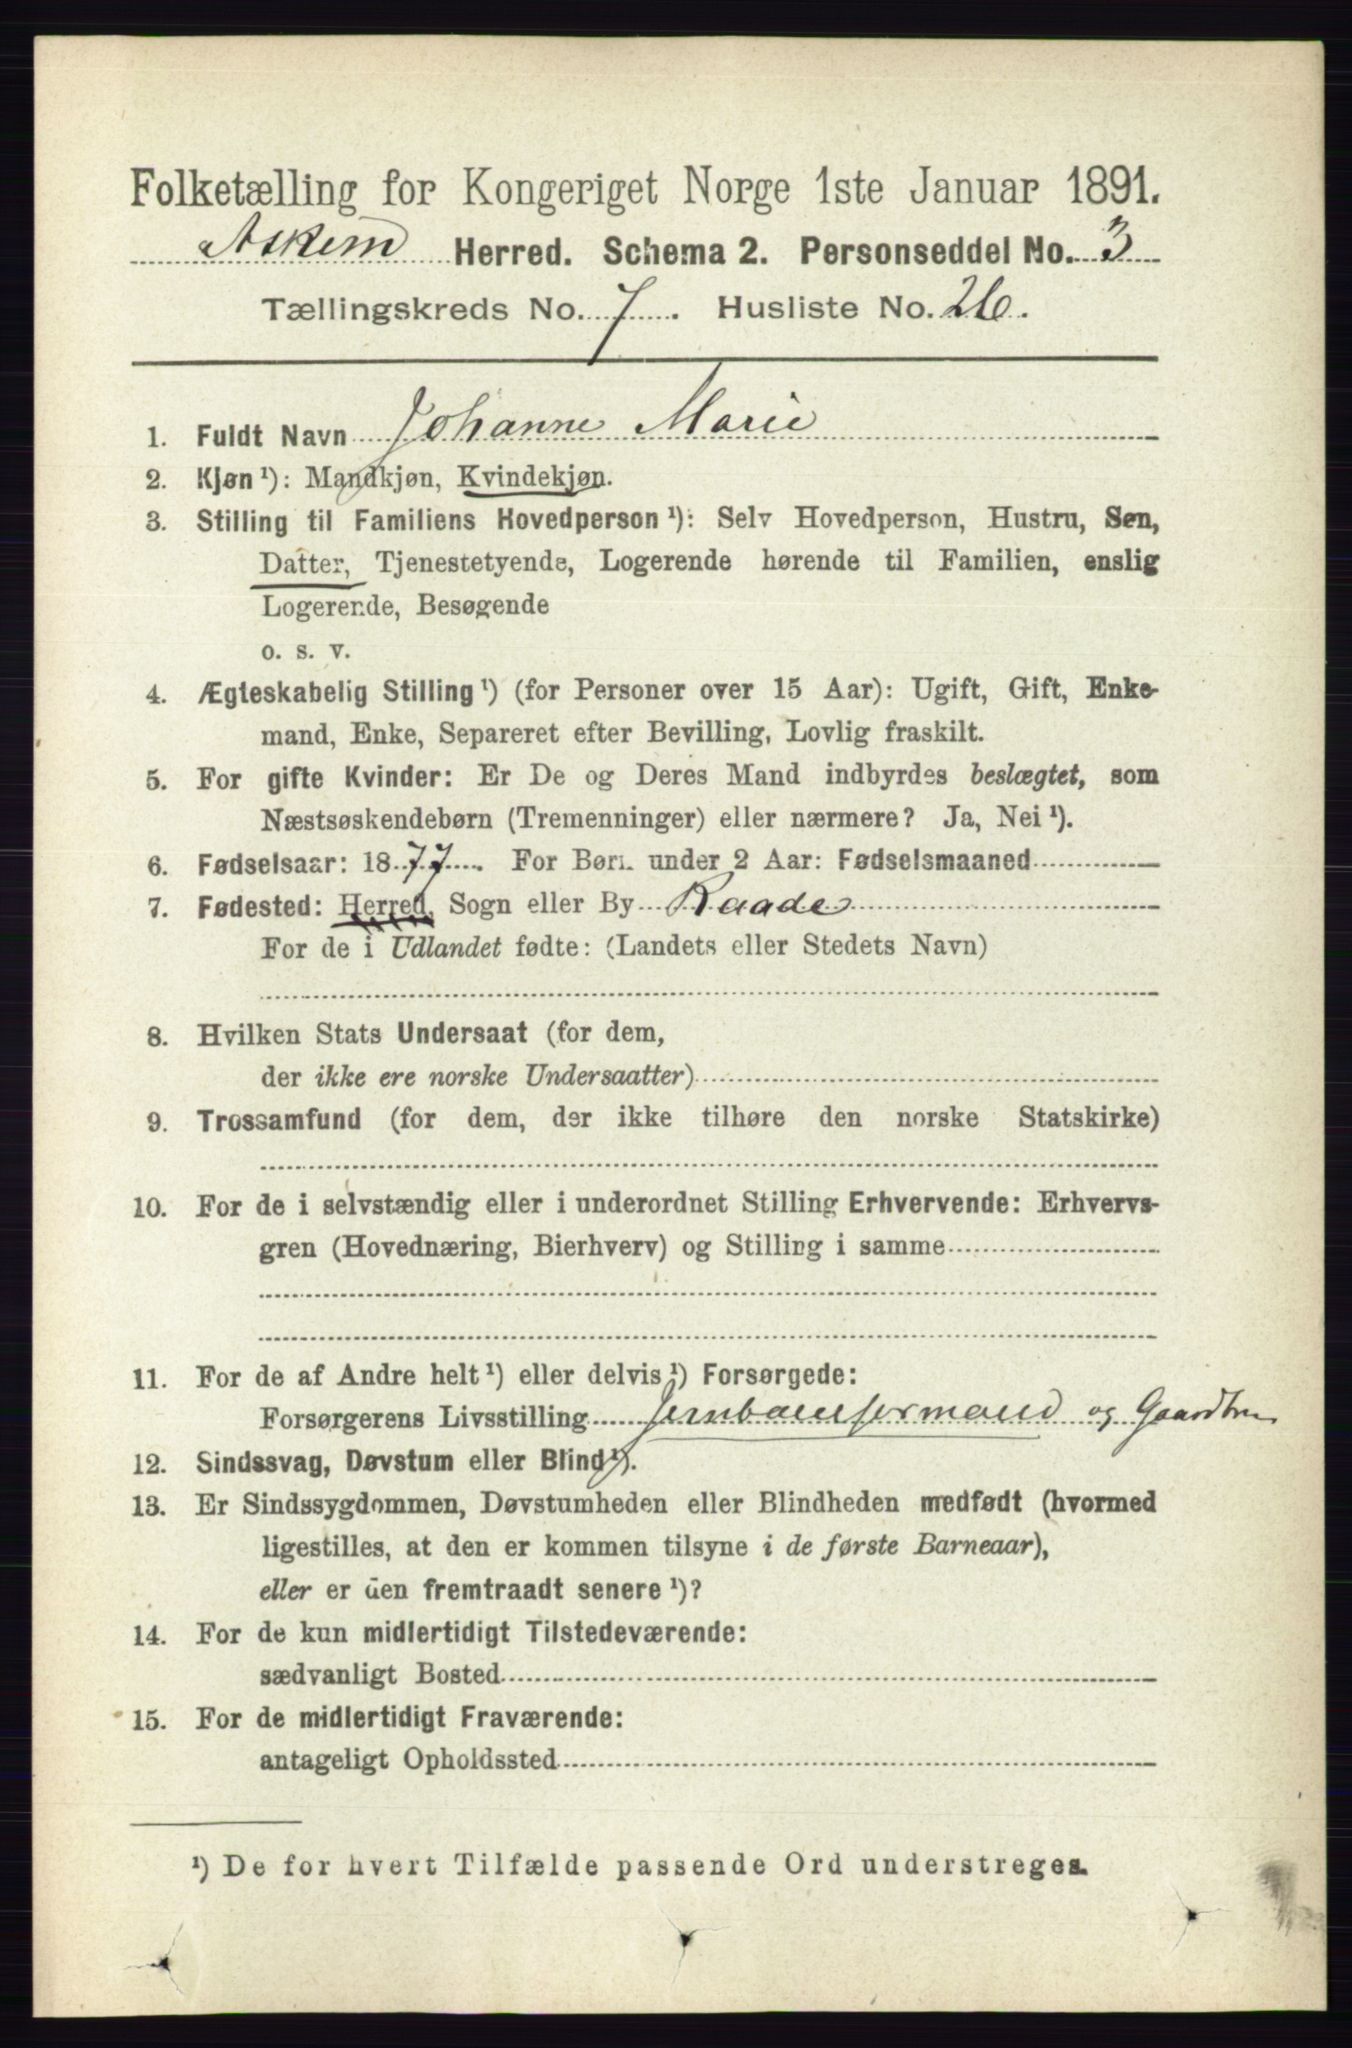 Folketælling for Kongeriget Norge 1ste Januar 1891.
Askim Herred. Schema 2. Personseddel No. 3
Tællingskreds No. 7. Husliste No. 26.
1. Fuldt Navn Johanne Marie
2. Kjøn ¹): Mandkjøn, Kvindekjøn.
3. Stilling til Familiens Hovedperson ¹): Selv Hovedperson, Hustru, Søn,
Datter, Tjenestetyende, Logerende hørende til Familien, enslig
Logerende, Besøgende
o. s. v.
4. Ægteskabelig Stilling ¹) (for Personer over 15 Aar): Ugift, Gift, Enke-
mand, Enke, Separeret efter Bevilling, Lovlig fraskilt.
5. For gifte Kvinder: Er De og Deres Mand indbyrdes beslægtet, som
Næstsøskendebørn (Tremenninger) eller nærmere? Ja, Nei ¹).
6. Fødselsaar: 1877. For Børn under 2 Aar: Fødselsmaaned
7. Fødested: Herred, Sogn eller By Raade
For de i Udlandet fødte: (Landets eller Stedets Navn)
8. Hvilken Stats Undersaat (for dem,
der ikke ere norske Undersaatter)
9. Trossamfund (for dem, der ikke tilhøre den norske Statskirke)
10. For de i selvstændig eller i underordnet Stilling Erhvervende: Erhvervs-
gren (Hovednæring, Bierhverv) og Stilling i samme
11. For de af Andre helt ¹) eller delvis ¹) Forsørgede:
Forsørgerens Livsstilling og
12. Sindssvag, Døvstum eller Blind ¹).
13. Er Sindssygdommen, Døvstumheden eller Blindheden medfødt (hvormed
ligestilles, at den er kommen tilsyne i de første Barneaar),
eller er den fremtraadt senere ¹)?
14. For de kun midlertidigt Tilstedeværende:
sædvanligt Bosted
15. For de midlertidigt Fraværende:
antageligt Opholdssted
¹) De for hvert Tilfælde passende Ord understreges.